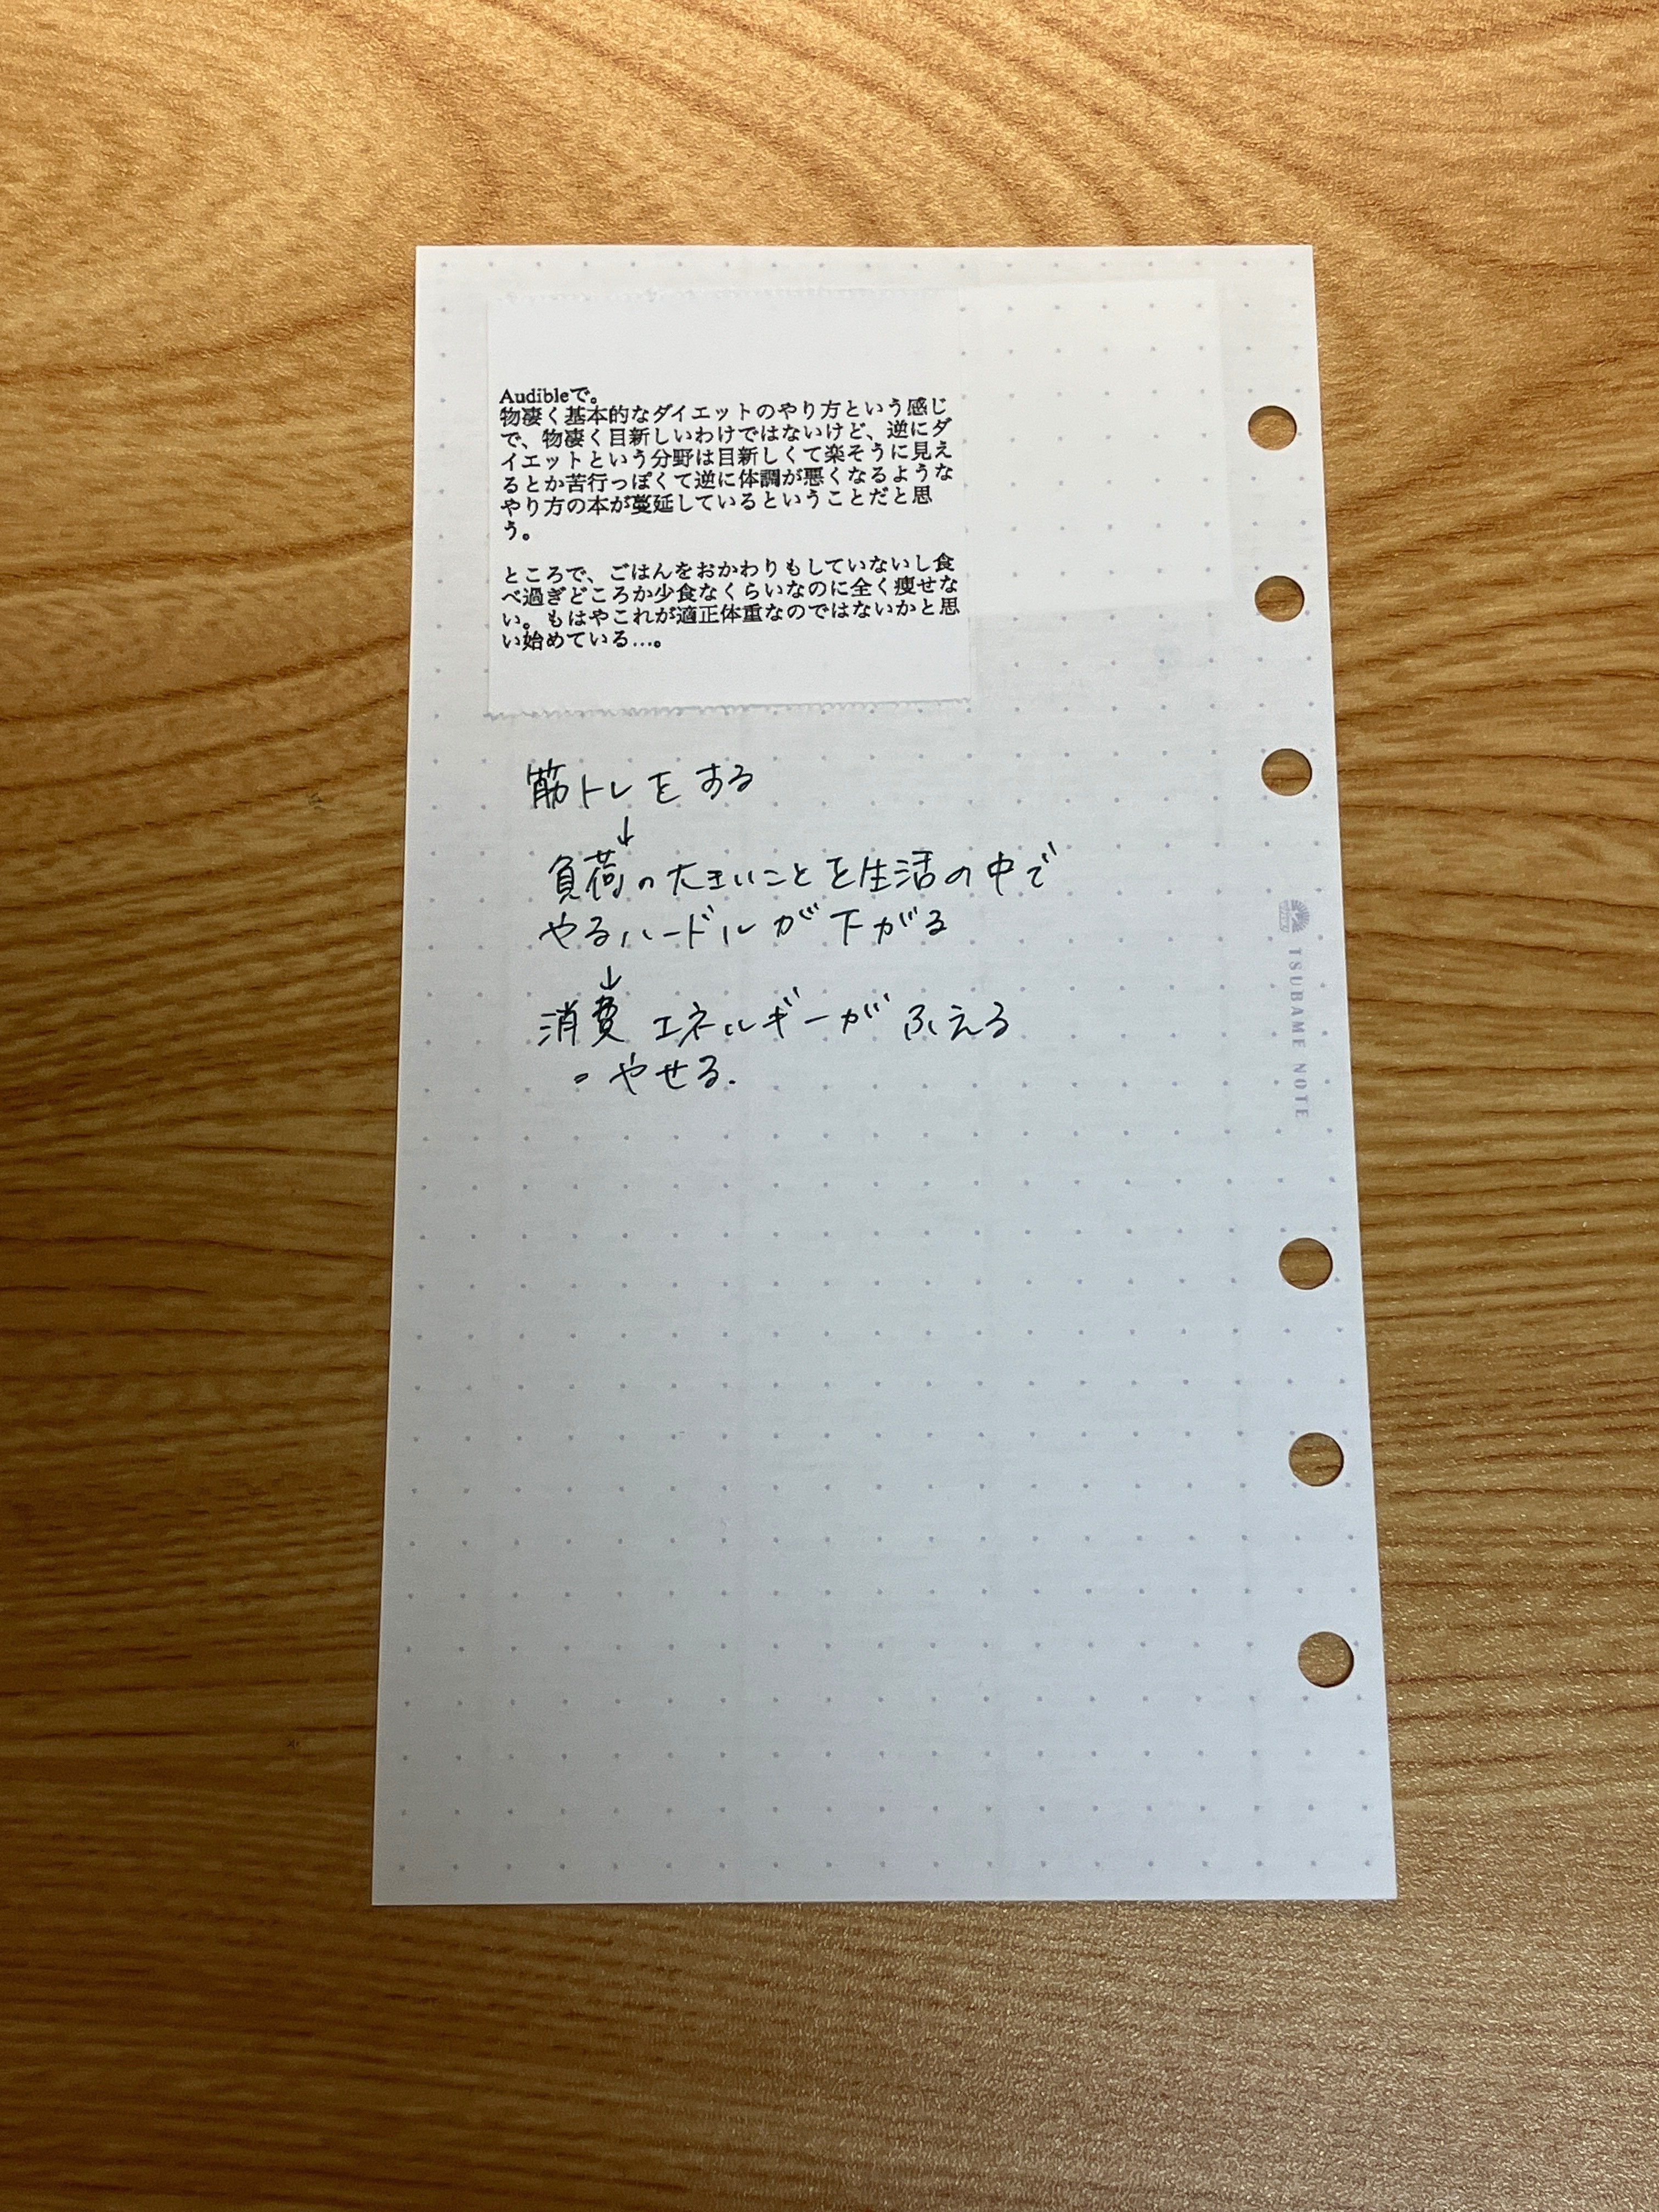 Audibleで。
物凄く基本的なダイエットのやり方という感じ
で、物凄く目新しいわけではないけど、逆にダ
イエットという分野は目新しくて楽そうに見え
るとか苦行っぽくて逆に体調が悪くなるような
やり方の本が蔓延しているということだと思
う。
ところで、ごはんをおかわりもしていないし食
べ過ぎどころか少食なくらいなのに全く痩せな
い。もはやこれが適正体重なのではないかと思
い始めている…。
筋トレをする
↓
負荷の大きいことを生活の中で
やるハードルが下がる
↓
消費エネルギーがふえる
。やせる.
TSUBAME NOTE